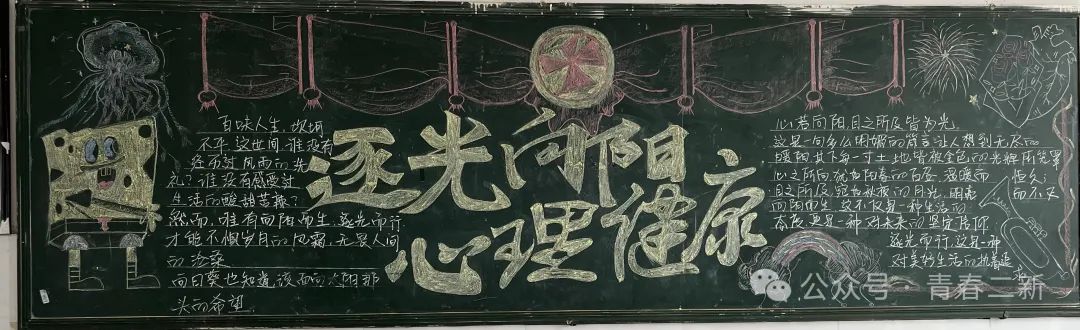 百味人生,坎坷
不平,这世间,谁没有
经历过风雨的洗
礼?谁没有感受过
生活的酸甜苦辣?
然而,唯有向阳而生,逐光而行
才能不惧岁月的风霜,无畏人间
的沧桑
向日葵也知道,该面向太阳那
头的希望.
逐光向阳
心理健康
心若向阳,目之所及皆为光
这是一句多么明媚的箴言让人想到无尽的
暖阳其下每一寸土地皆被金色的光辉所笼罩
心之所向,犹如阳春的百花,温暖而恒久;
目之所及,宛若秋夜的月光,明亮而不灭
向阳而生,这不仅是一种生活的
态度,更是一种对未来的坚定信仰
逐光而行,这是一种
对美好生活的执着追
公众号·青春二新